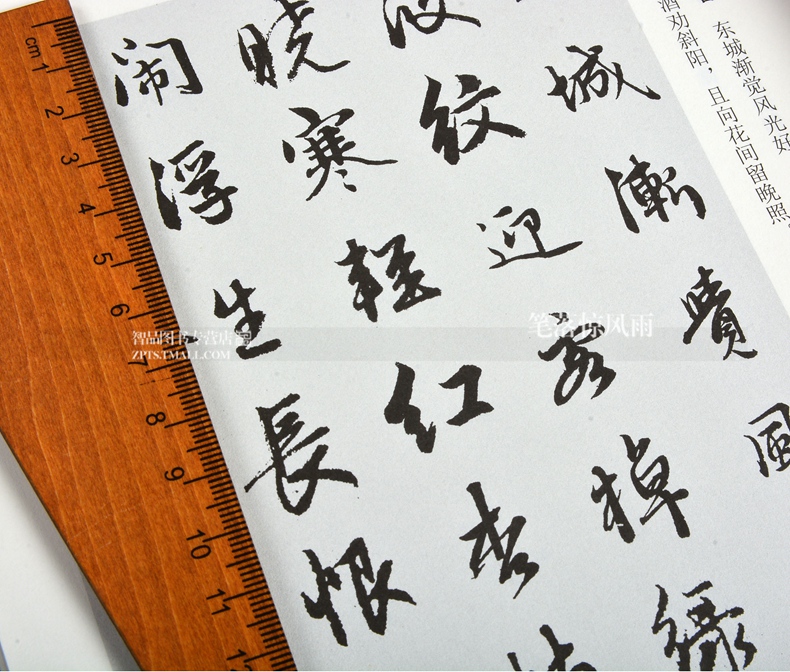 东城渐觉风光好
酒劝斜阳，且向花间留晚照。
城漸覺風
波紋迎客棹綠
晓寒輕紅杏
闹浮生長恨
cm 1 2 3 4 5 6 7 8 9 10 11 12
智品图书专营店
ZPTS.TMALL.COM
笔落惊风雨